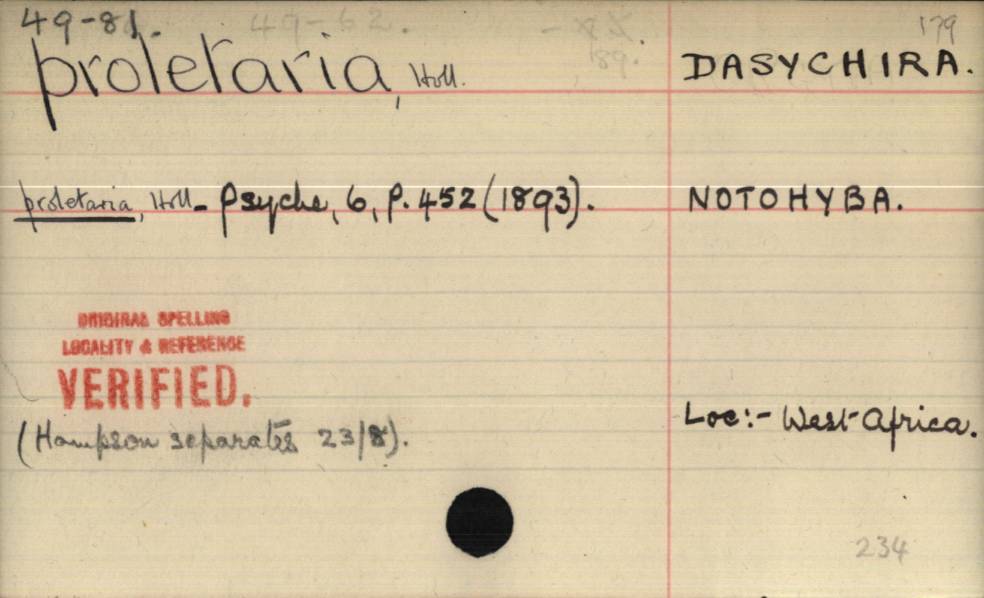 49-81. 49-62. 179
proletaria, Holl. 189. DASYCHIRA.
proletaria, Holl - Psyche, 6, p. 452 (1893). NOTOHYBA.
ORIGINAL SPELLING
LOCALITY & REFERENCE
VERIFIED.
Loc:- West Africa.
(Hampson separates 23/8).
234